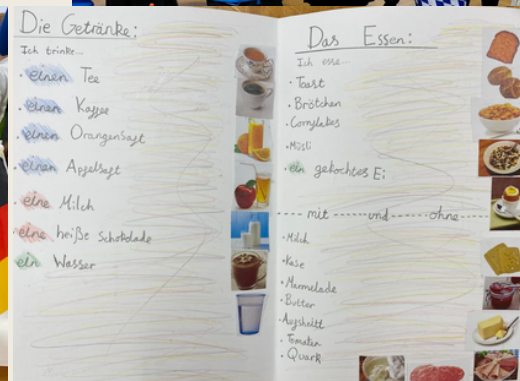 Die Getränke:
Ich trinke...
· einen Tee
· einen Kaffee
· einen Orangensaft
· einen Apfelsaft
· eine Milch
· eine heiße Schokolade
· ein Wasser
Das Essen:
Ich esse...
· Toast
· Brötchen
· Cornflakes
· Müsli
· ein gekochtes Ei
mit und ohne
· Milch
· Käse
· Marmelade
· Butter
· Aufschnitt
· Tomaten
· Quark